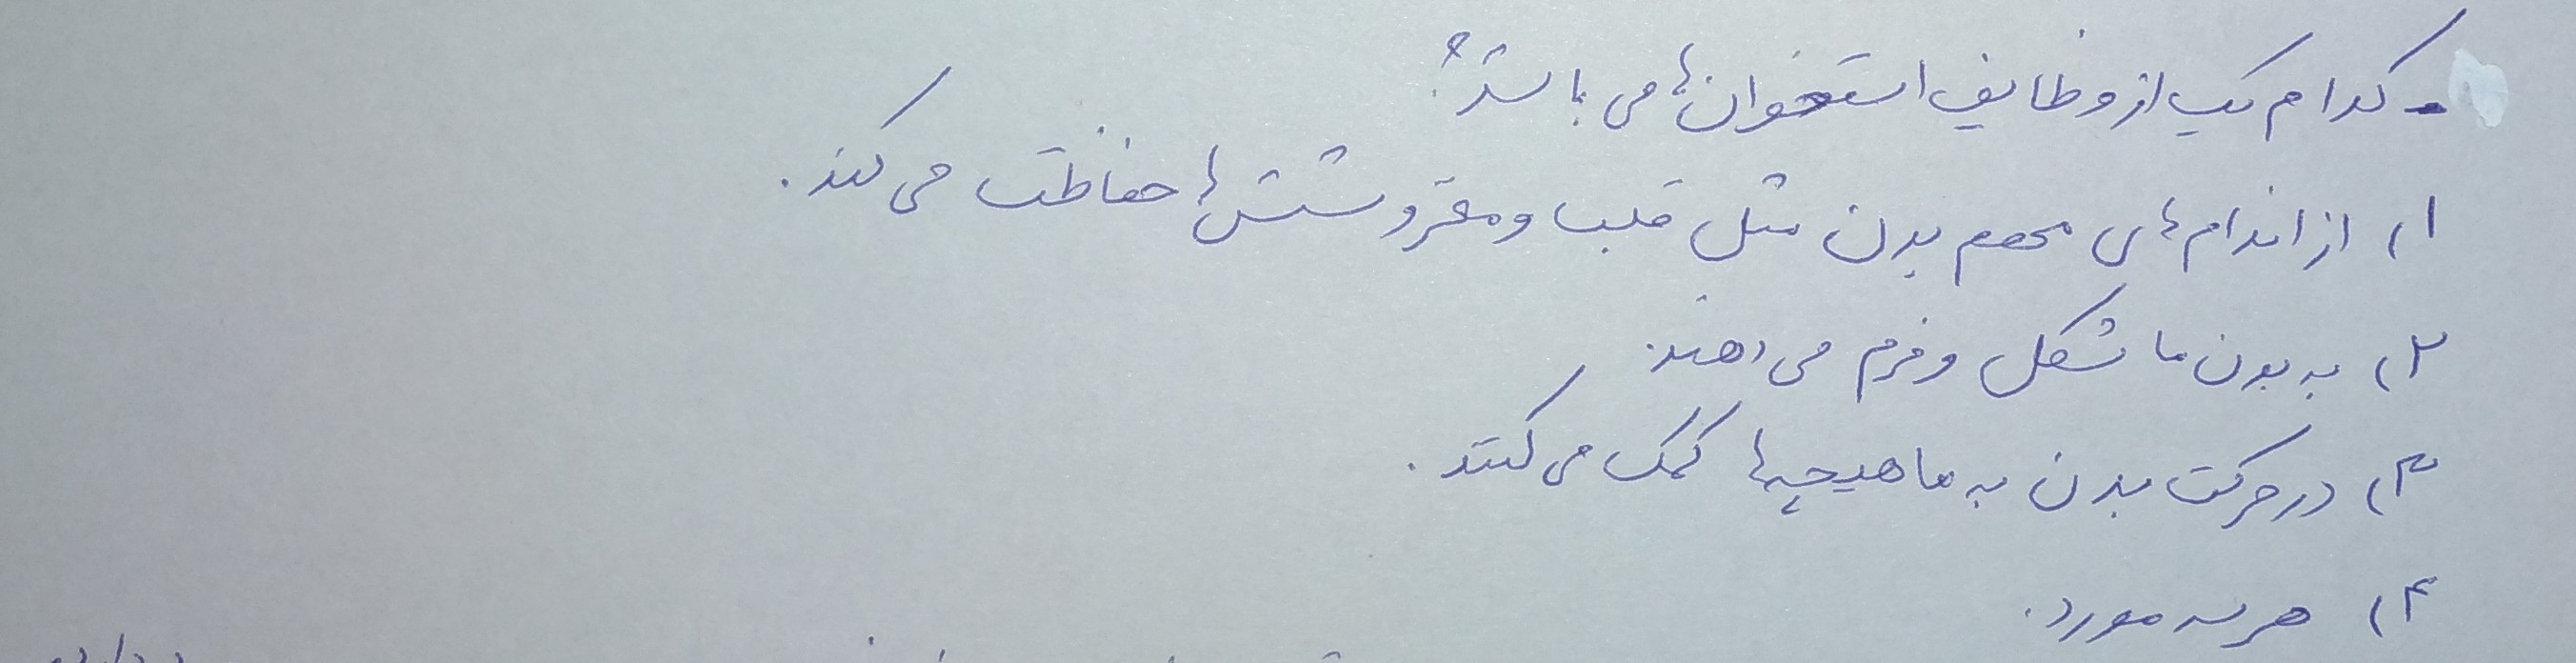 - کدام یک از وظایف استخوان‌ها می باشد؟
۱) از اندام‌های مهم بدن مثل قلب و مغز و شش‌ها حفاظت می کند.
۲) به بدن ما شکل و فرم می دهند.
۳) در حرکت بدن به ماهیچه‌ها کمک می کنند.
۴) هر سه مورد.